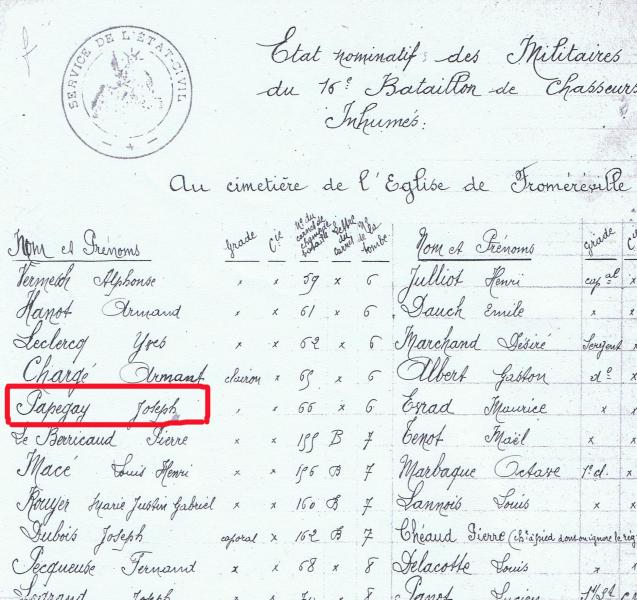 SERVICE DE L'ÉTAT-CIVIL
Etat nominatif des Militaires
du 16e Bataillon de Chasseurs
Inhumés:
Au cimetière de l'Eglise de Froméréville
Nom et Prénoms grade Cie N° du carnet de champ de bataille Lettre du carnet N° de la tombe Nom et Prénoms grade Cie
Alphonse x x 59 x 6 Julliot Henri capal x
Hanot Armand x x 61 x 6 Dauch Emile x x
Leclercq Yves x x 62 x 6 Marchand Désiré Sergent x
Chargé Armant clairon x 65 x 6 Albert Gaston do x
Papegay Joseph , x 66 x 6 Esrad Maurice x x
Le Berricaud Pierre x x 155 B 7 Tenot Maël x x
Macé Louis Henri x x 156 B 7 Marbaque Octave 1e cl. x
Rouyer Marie Justin Gabriel x x 160 B 7 Lannois Louis x x
Dubois Joseph caporal x 162 B 7 Chéaud Pierre (ch. à pied dont on ignore le reg
Pecqueuse Fernand x x 68 x 8 Delacotte Louis x x
Legrand Joseph x x x 8 Panot Lucien